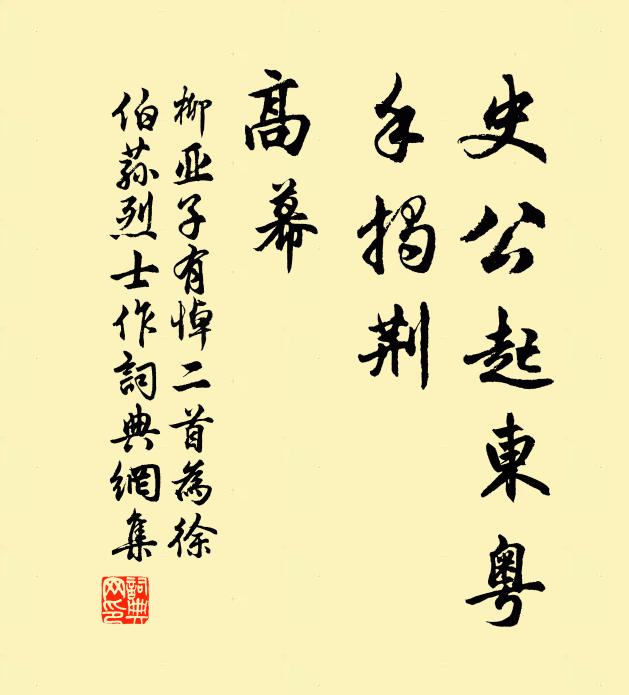 史公起東粵
手揭荆
高幕
柳亚子有悼二首為徐
伯荪烈士作詞典網集
詞典
网印